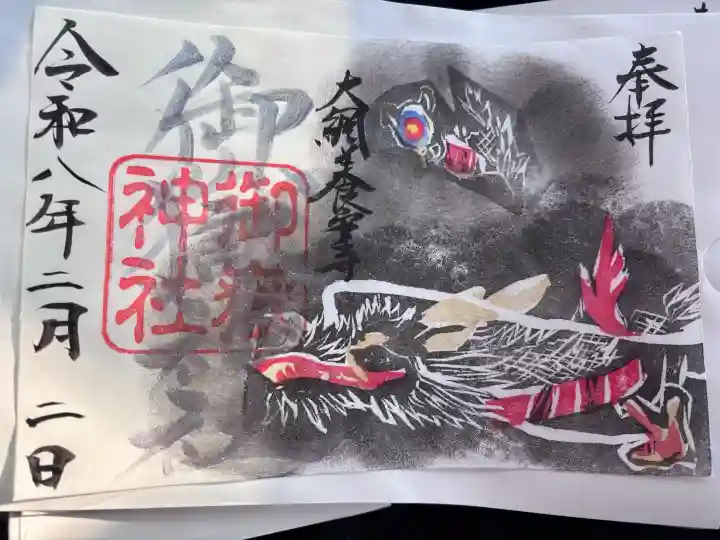 奉拝
大網養安寺
御
御
神社
令和八年二月二日